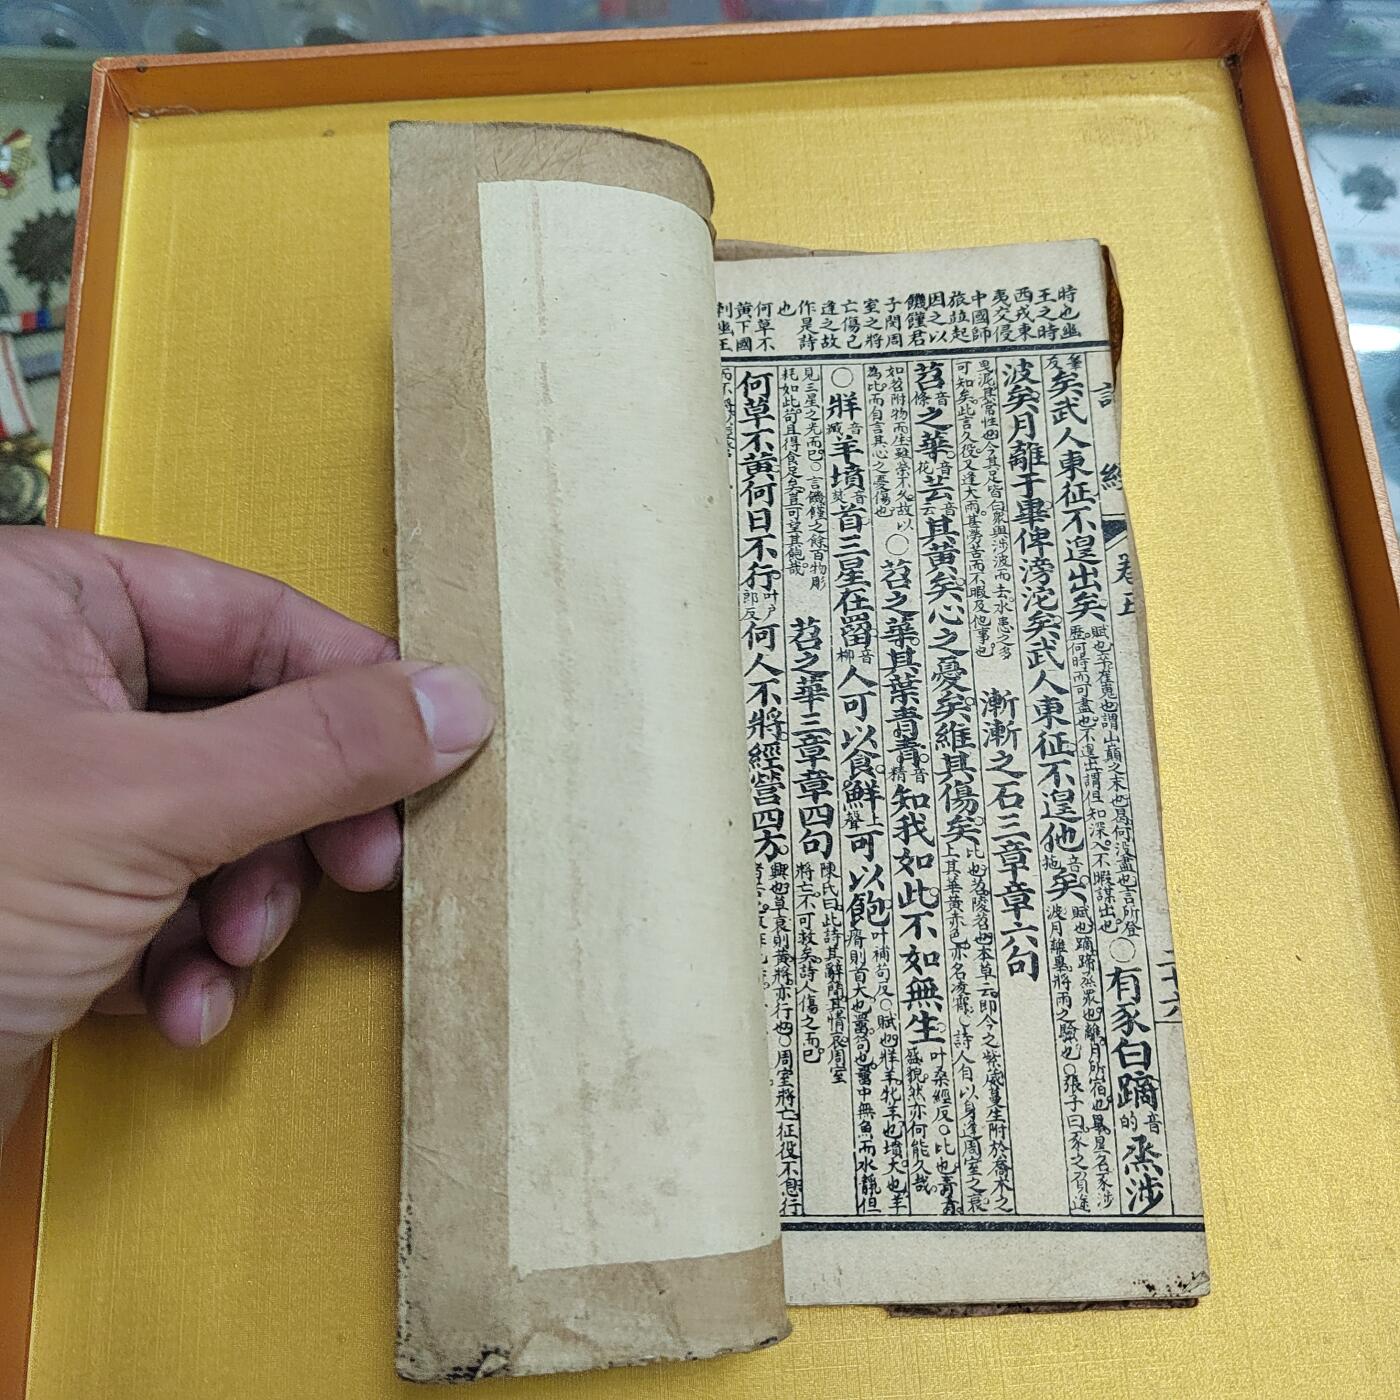 時也幽
王之時
西戎東
夷交侵
中國師
旅並起
因之以
饑饉君
子閔周
室之將
亡傷己
逢之故
作是詩
也
何草不
黃下國
刺幽王
詩經
卷五
二十六
矣武人東征不遑出矣
賦也卒崔嵬也謂山巔之末也曷何沒盡也言所登
歷何時而可盡也不遑出謂但知深入不暇謀出也
○有豕白蹢音的烝涉
波矣月離于畢俾滂沱矣武人東征不遑他音拖矣
賦也蹢蹄烝眾也離月所宿也畢星名豕涉
波月離畢將雨之驗也○張子曰豕之負塗
曳泥其常性也今其足皆白眾與涉波而去水患之多
可知矣此言久役又逢大雨甚勞苦而不暇及他事也
漸漸之石三章章六句
苕音條之華音花芸音云其黃矣心之憂矣維其傷矣
比也苕陵苕也本草云即今之紫葳蔓生附於喬木之
上其華黃赤色亦名凌霄○詩人自以身逢周室之衰
如苕附物而生雖榮不久故以
為比而自言其心之憂傷也
○苕之華其葉青青音精知我如此不如無生
叶桑經反○比也青青
盛貌然亦何能久哉
○牂音臧羊墳音焚首三星在罶音柳人可以食鮮上聲可以飽
叶補苟反○賦也牂羊牝羊也墳大也羊
瘠則首大也罶笱也罶中無魚而水靜但
見三星之光而已○言饑饉之餘百物彫
耗如此苟且得食足矣豈可望其飽哉
苕之華三章章四句
陳氏曰此詩其辭簡其情哀周室
將亡不可救矣詩人傷之而已
何草不黃何日不行叶戶郎反何人不將經營四方
興也草衰則黃將亦行也○周室將亡征役不息行